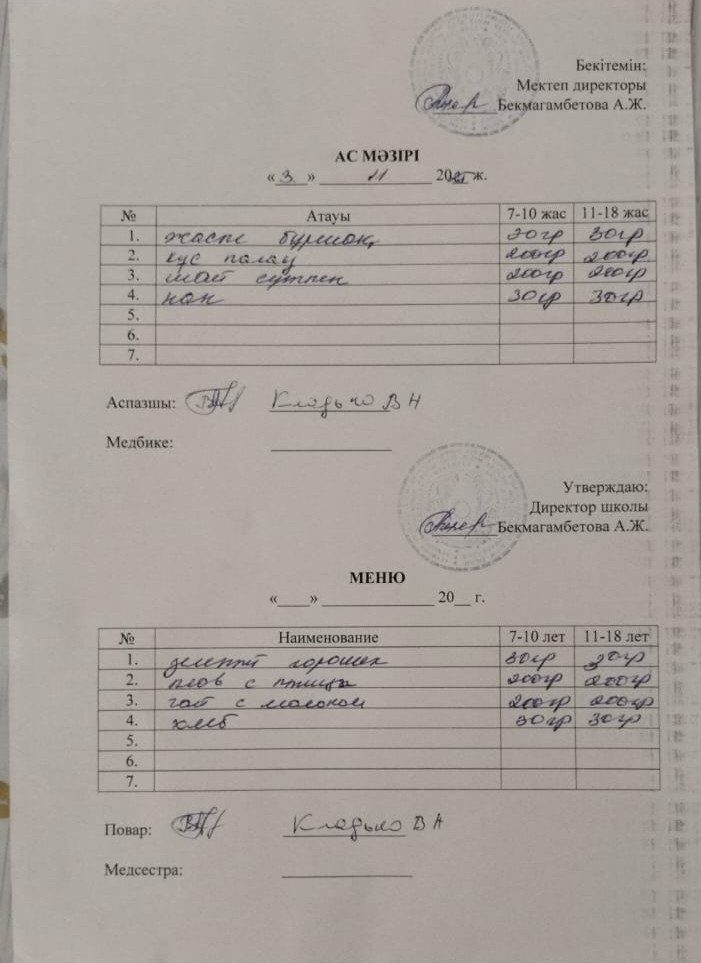 Бекітемін:
Мектеп директоры
Бекмагамбетова А.Ж.
АС МӘЗІРІ
« 3 » 11 2025 ж.
№ Атауы 7-10 жас 11-18 жас
1. жасыл бұршақ 30гр 30гр
2. құс палау 200гр 200гр
3. шай сүтпен 200гр 200гр
4. нан 30гр 30гр
5.
6.
7.
Аспазшы: Кладько В Н
Медбике:
Утверждаю:
Директор школы
Бекмагамбетова А.Ж.
МЕНЮ
«____» ______________ 20__ г.
№ Наименование 7-10 лет 11-18 лет
1. зеленый горошек 30гр 30гр
2. плов с птицы 200гр 200гр
3. чай с молоком 200гр 200гр
4. хлеб 30гр 30гр
5.
6.
7.
Повар: Кладько В Н
Медсестра: